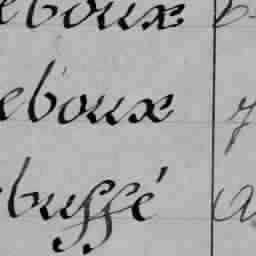 eboux
eboux
buffé